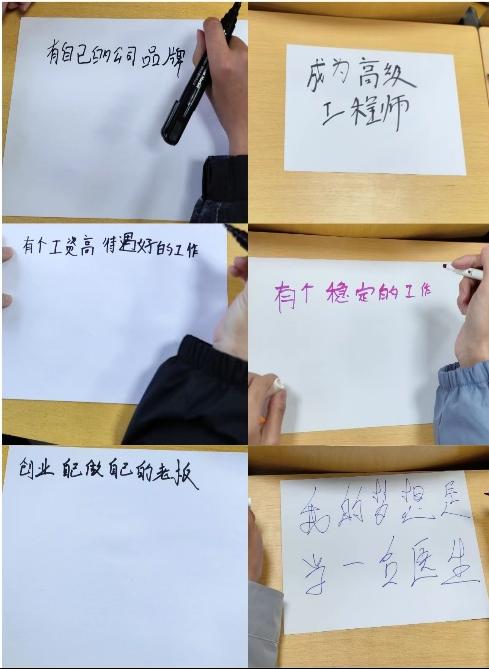 有自己的公司品牌
成为高级
工程师
有个工资高 待遇好的工作
有个稳定的工作
创业 自己做自己的老板
我的梦想是
当一名医生